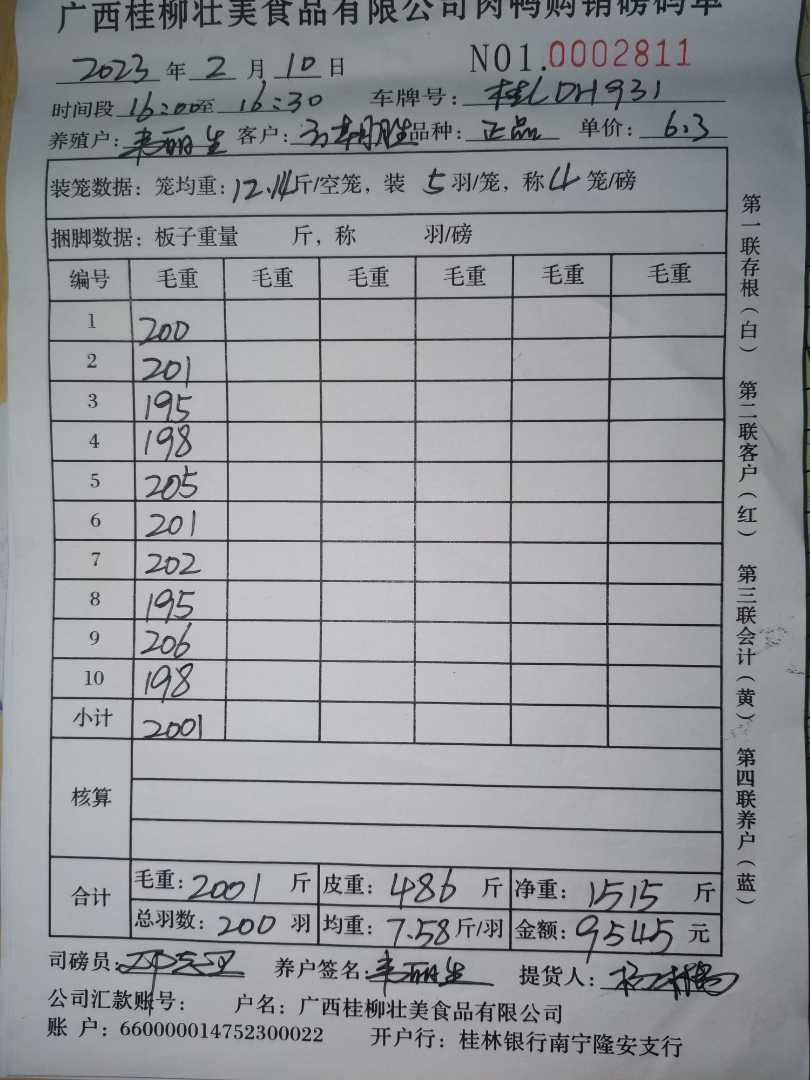 广西桂柳壮美食品有限公司肉鸭购销磅码单
2023 年 2 月 10 日 NO1.0002811
时间段 16:00 至 16:30 车牌号: 桂L DH931
养殖户: 丽生 客户: 朝胜 品种: 正品 单价: 6.3
装笼数据: 笼均重: 12.14 斤/空笼, 装 5 羽/笼, 称 4 笼/磅
捆脚数据: 板子重量 斤, 称 羽/磅
编号 毛重 毛重 毛重 毛重 毛重 毛重
1 200
2 201
3 195
4 198
5 205
6 201
7 202
8 195
9 206
10 198
小计 2001
核算
合计 毛重: 2001 斤 皮重: 486 斤 净重: 1515 斤
总羽数: 200 羽 均重: 7.58 斤/羽 金额: 9545 元
司磅员: 养户签名: 丽生 提货人:
公司汇款账号: 户名: 广西桂柳壮美食品有限公司
账 户: 660000014752300022 开户行: 桂林银行南宁隆安支行
第一联存根(白) 第二联客户(红) 第三联会计(黄) 第四联养户(蓝)